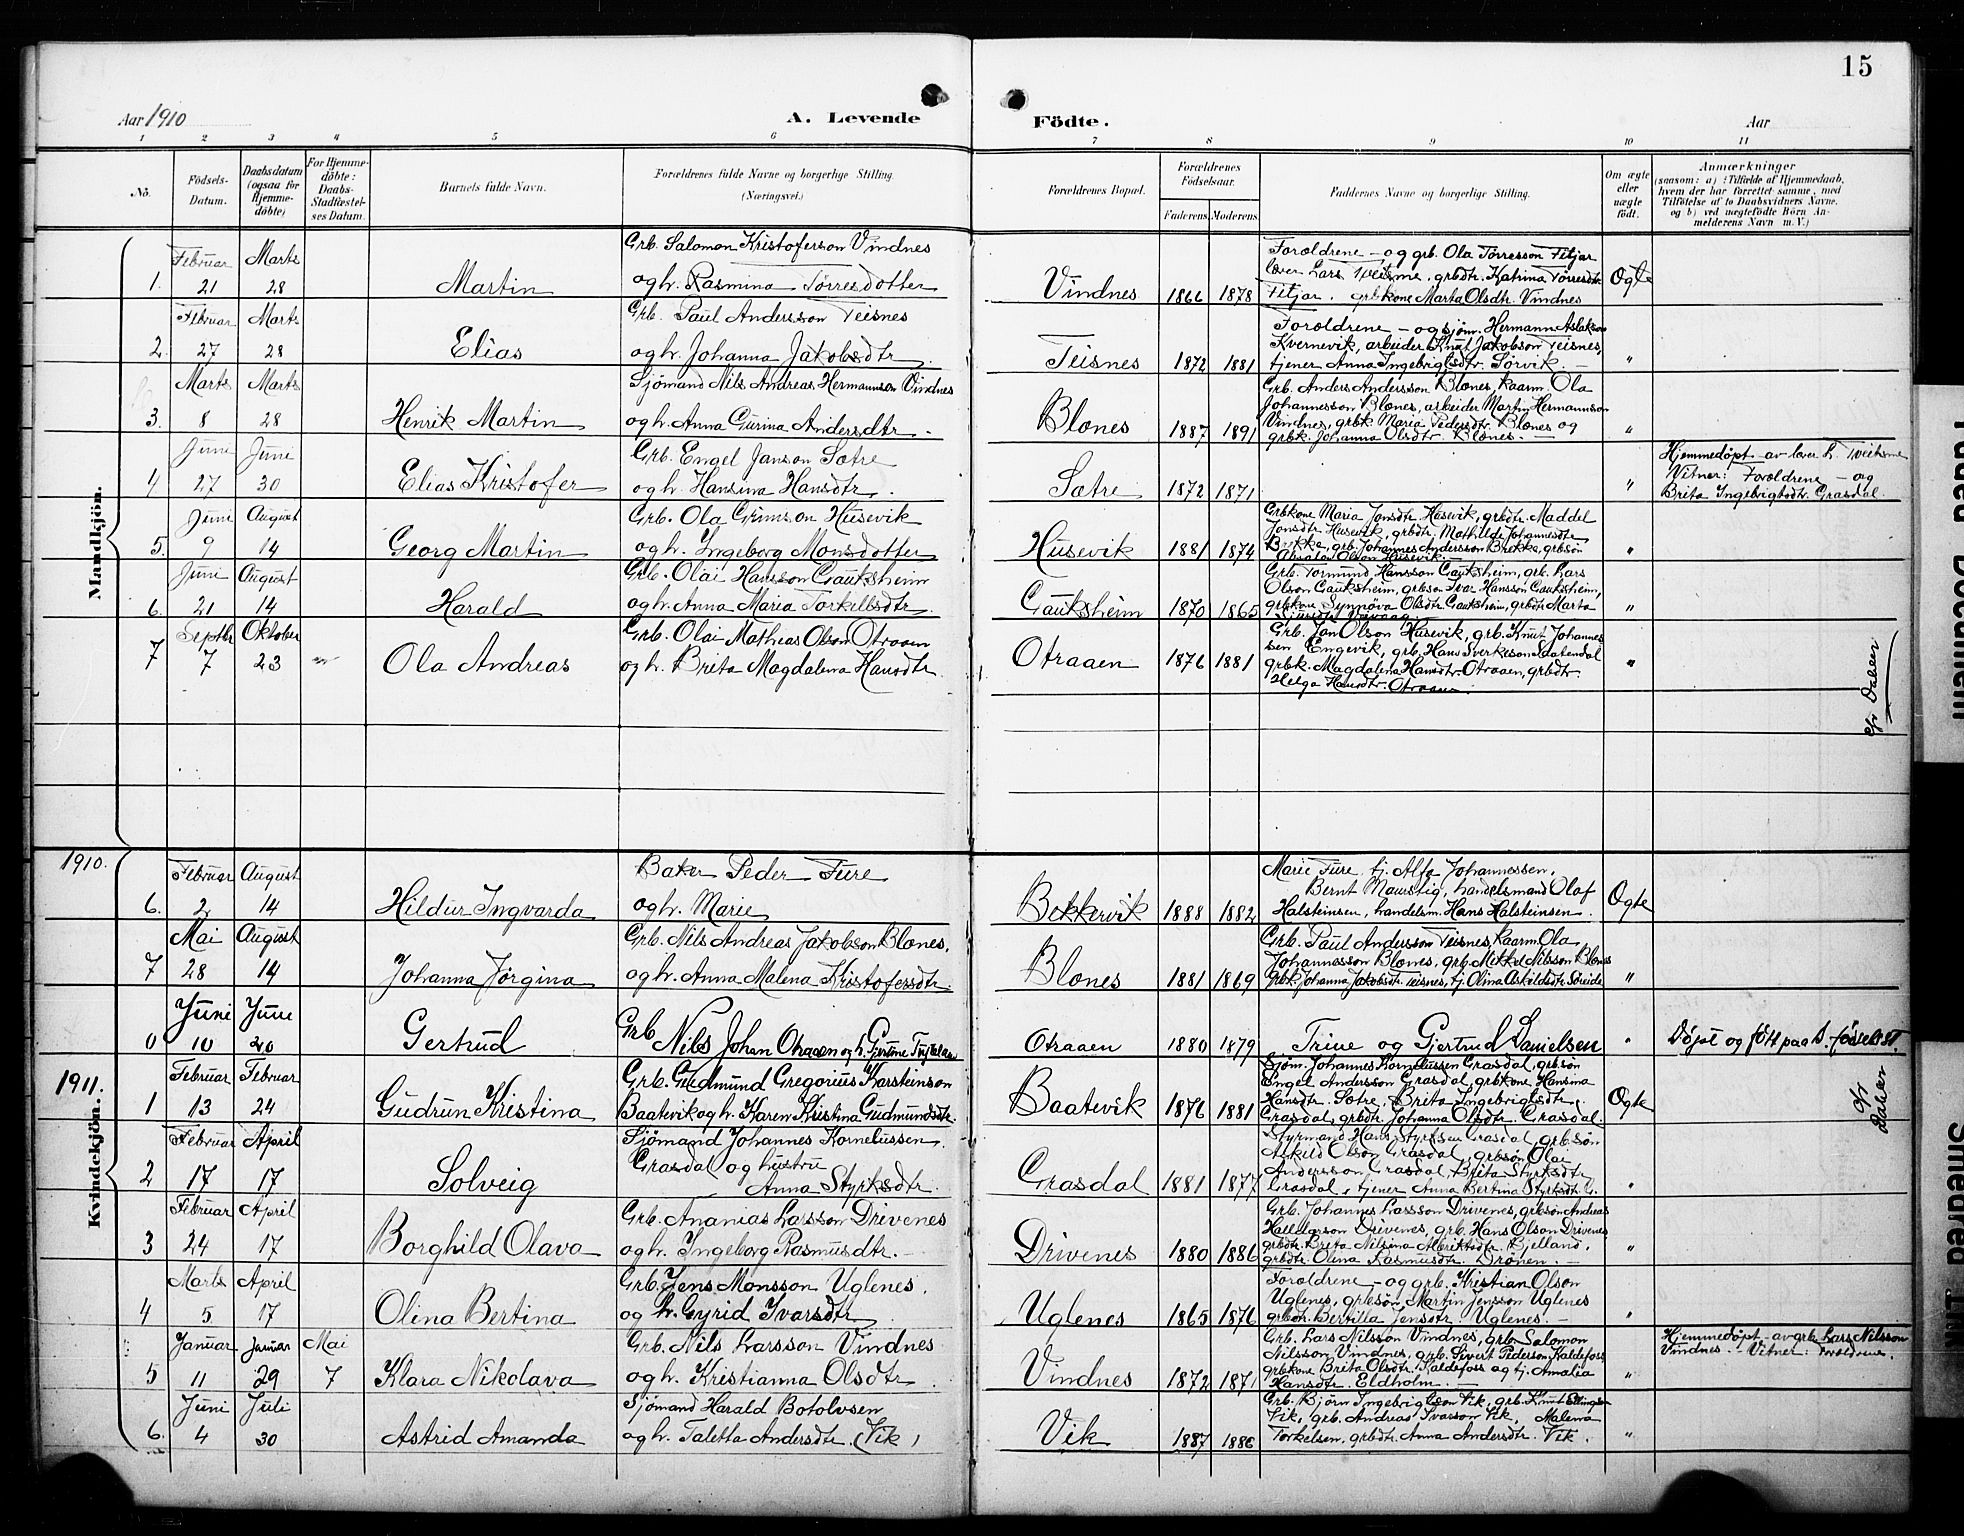 15
Aar 1910
A. Levende Födte.
Aar
1 2 3 4 5 6 7 8 9 10 11
No.
Födsels-Datum.
Daabsdatum (ogsaa for Hjemme-döbte)
For Hjemme-döbte: Daabs-Stadfæstel-ses Datum.
Barnets fulde Navn.
Forældrenes fulde Navne og borgerlige Stilling. (Næringsvei.)
Forældrenes Bopæl.
Forældrenes Födselsaar.
Faderens. Moderens.
Faddernes Navne og borgerlige Stilling.
Om ægte eller uægte födt.
Anmærkninger
(saasom: a) i Tilfælde af Hjemmedaab,
hvem der har forrettet samme, med
Tilföielse af to Daabsvidners Navne,
og b) ved uegtefödte Börn An-
melderens Navn m. V.)
Mandkjön.
1. Februar 21 Marts 28
Martin
Grb. Salomon Kristoferson Vindnes
og h. Rasmina Tørresdotter
Vindnes 1866 1878
Foroldrene - og grb. Ola Tørresson Fitjar
lærer Lars Tveitsme, grbdtr. Katrina Tørresdtr.
Fitjar. grbkone Marta Olsdtr. Vindnes
Ogte
2. Februar 27 Marts 28
Elias
Grb. Paul Andersson Teisnes
og h. Johanna Jakobsdtr.
Teisnes 1872 1881
Foroldrene - og sjøm. Hermann Aslakson
Kvernevik, arbeider Knut Jakobson Teisnes,
tjener Anna Ingebrigtsdtr. Sørvik. -
"
3. Marts 8 Marts 28
Henrik Martin
Sjömand Nils Andreas Hermannson Vindnes
og h. Anna Gurina Andersdtr.
Blones 1887 1891
Grb. Anders Andersson Blones, kaarm. Ola
Johannesson Blones, arbeider Martin Hermannson
Vindnes, grbk. Maria Pedersdtr. Blones og
grbk. Johanna Olsdtr. Blones. -
"
4 Juni 27 Juni 30
Elias Kristofer
Grb. Engel Janson Sætre
og h. Hansina Hansdtr.
Sætre 1872 1871
"
Hjemmedøpt av lærer L. Tveitsme
Vitner: Foroldrene - og
Brita Ingebrigtsdtr. Grasdal.
5. Juni 9 August 14
Georg Martin
Grb. Ola Grimson Husevik
og h. Ingeborg Monsdotter
Husevik 1881 1874
Grbkone Maria Jonsdtr. Husevik, grbdtr. Maddel
Jonsdtr. Husevik, grbdtr. Mathilde Johannesdtr.
Brekke, grb. Johannes Andersson Brekke, grbsøn
Olson Husevik. -
"
6. Juni 21 August 14
Harald
Grb. Olai Hansson Gauksheim
og h. Anna Maria Torkellsdtr.
Gauksheim 1870 1865
Grb. Tormund Hansson Gauksheim, grb. Lars
Olson Gauksheim, grbsøn Ivar Hansson Gauksheim,
grbkone Synnøva Olsdtr. Gauksheim, grbdtr. Marta
"
7 Septbr 7 Oktober 23
Ola Andreas
Grb. Olai Mathias Olson Otraaen
og h. Brita Magdalena Hansdtr.
Otraaen 1876 1881
Grb. Jan Olson Husevik, grb. Knut Johannes
sen Engevik, grb. Hans Sverkeson Laatendal
grbk. Magdalena Hansdtr. Otraaen, grbdtr.
Helga Hansdtr. Otraaen.
"
Dalen
Kvindekjön.
1910.
6. Februar 2 August 14
Hildur Ingvarda
Baker Peder Fure
og h. Marie
Bekkervik 1888 1882
Marie Fure, tj. Alfa Johannessen,
Bernt Maurstig, handelsmand Olaf
Halsteinsen, handelsm. Hans Halsteinsen.
Ogte
7 Mai 28 August 14
Johanna Jørgina
Grb. Nils Andreas Jakobson Blones,
og h. Anna Malena Kristofersdtr.
Blones 1881 1869
Grb. Paul Andersson Teisnes, kaarm. Ola
Johannesson Blones, grb. Mikkel Nilsson Blones
Grbk. Johanna Jakobsdtr. Teisnes, tj. Olina Askildsdtr. Søreide
"
0 Juni 10 June 20
Gertrud
Grb Nils Johan Otraaen og h. Gjertine
Otraaen 1880 1879
Trine og Gjertrud Danielsen
"
Døpt og født paa B. fødselsst.
1911.
1 Februar 13 Februar 24
Gudrun Kristina
Grb. Gudmund Gregorius Karsteinson
Baatevik og h. Karen Kristina Gudmundsdtr.
Baatevik 1876 1881
Sjøm. Johannes Kornelussen Grasdal, grbsøn
Engel Andersson Grasdal, grbkone Hansina
Hansdtr. Sætre, Brita Ingebrigtsdtr.
Grasdal, grbdtr. Johanna Olsdtr. Grasdal.
Ogte
Dalen
2 Februar 17 April 17
Solveig
Sjömand Johannes Kornelussen
Grasdal og hustru
Anna Styrksdtr.
Grasdal 1881 1877
Styrmand Hans Styrksen Grasdal, grbsøn
Askild Olson Grasdal, grbsøn Olai
Andersson Grasdal, Brita Styrksdtr.
Grasdal, tjener Anna Bertina Styrksdtr. G.
"
3 Februar 24 April 17
Borghild Olava
Grb. Ananias Larsson Drivenes
og h. Ingeborg Rasmusdtr. -
Drivenes 1880 1886
Grb. Johannes Larsson Drivenes, grbsøn Andreas
Hallelgrson Drivenes, grb. Hans Olson Drivenes
grbdtr. Brita Nilsina Albriktsdtr. Bjelland,
grbdtr. Olina Rasmusdtr. Drønen. -
"
4 Marts 5 April 17
Olina Bertina
Grb. Jens Monsson Uglenes.
og h. Gyrid Ivarsdtr.
Uglenes 1865 1876
Foroldrene - og grb. Kristian Olson
Uglenes, grbsøn Martin Jensson Uglenes
grbdtr. Bertilla Jensdtr. Uglenes. -
"
5 Januar 11 Januar 29 Mai 7
Klara Nikolava
Grb. Nils Larsson Vindnes
og h. Kristianna Olsdtr.
Vindnes 1872 1871
Grb. Lars Nilsson Vindnes, grb. Salomon
Nilsson Vindnes, grb. Sivert Pederson Kaldefoss
grbkone Brita Olsdtr. Kaldefoss og tj. Amalia
Hansdtr. Eldholm. -
"
Hjemmedøpt - av grb. Lars Nilsson
Vindnes. - Vitner - Foroldrene.
6. Juni 4 Juli 30
Astrid Amanda
Sjömand Harald Botolvsen
og h. Taletta Andersdtr. (Vik)
Vik 1887 1886
Grb. Bjørn Ingebrigtson Vik, grb. Knut Ellingson
Vik, grb. Andreas Ivarson Vik, Malena
Torkelsen, grbdtr. Anna Andersdtr. Vik.
"
Faded Document
Smeared Ink